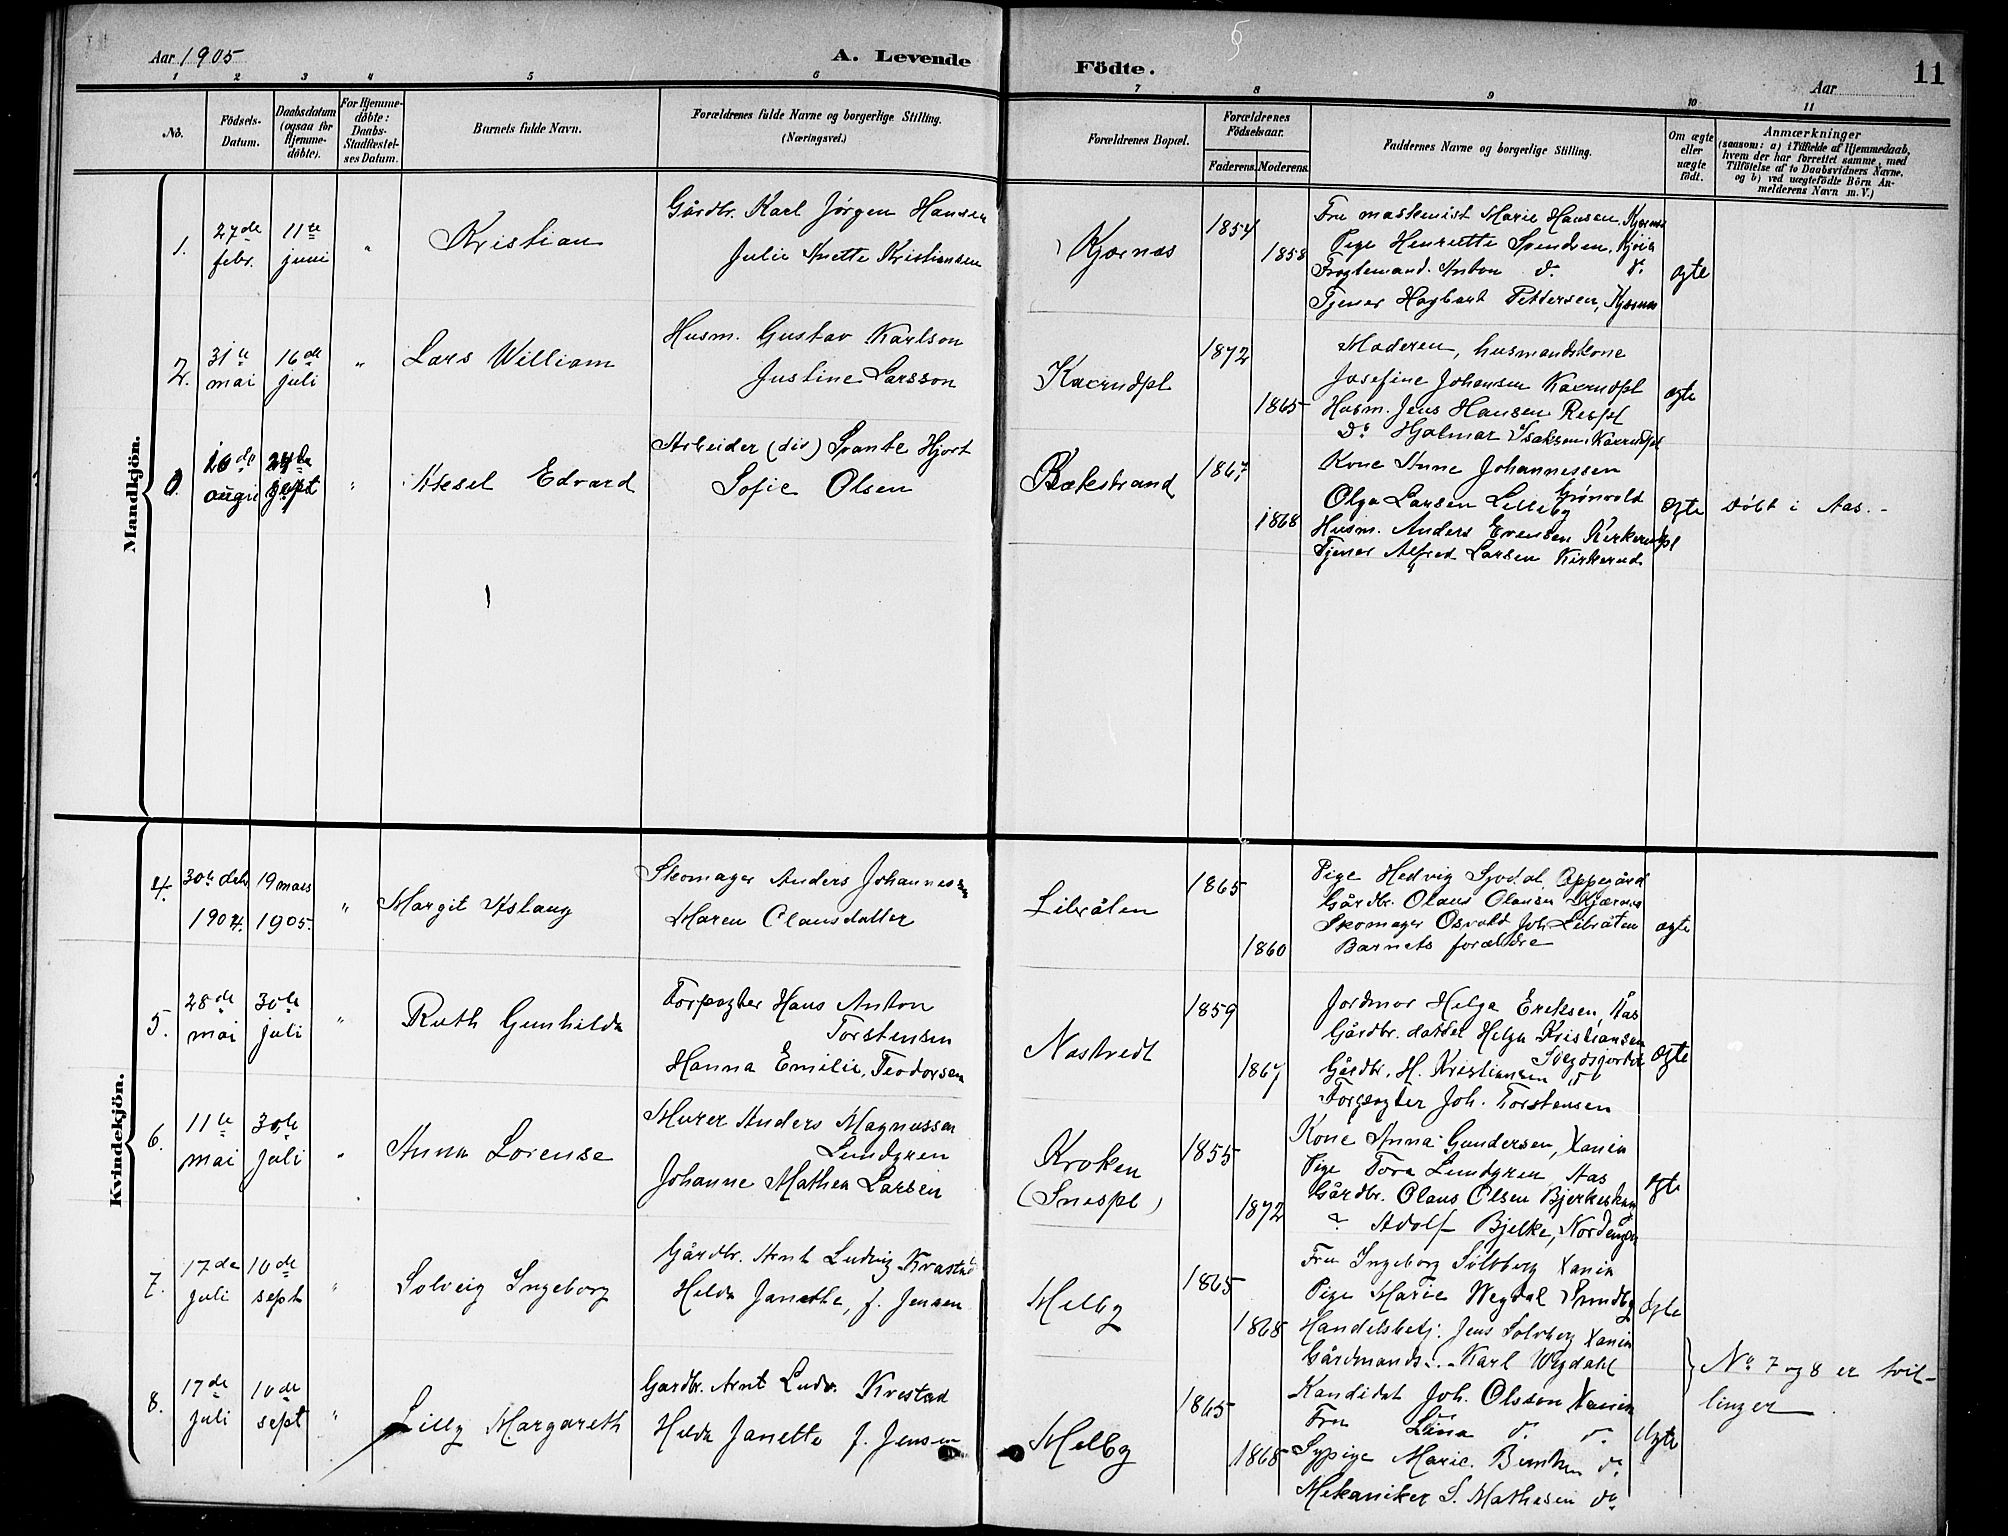 Aar 1905
A. Levende Födte.
Aar
11
1 2 3 4 5 6 7 8 9 10 11
No.
Födsels-Datum.
Daabsdatum (ogsaa for Hjemme-döbte).
For Hjemme-döbte: Daabs-Stadfæstel-ses Datum.
Barnets fulde Navn.
Forældrenes fulde Navne og borgerlige Stilling.
(Næringsvei.)
Forældrenes Bopæl.
Forældrenes Födselsaar.
Faderens. Moderens.
Faddernes Navne og borgerlige Stilling.
Om ægte eller uægte födt.
Anmærkninger
(saasom: a) i Tilfælde af Hjemmedaab,
hvem der har forrettet samme, med
Tilföielse af to Daabsvidners Navne,
og b) ved uægtefödte Börn An-
melderens Navn m. V.)
Mandkjön.
1.
27de febr.
11te juni
"
Kristian
Gårdbr. Karl Jørgen Hansen
Julie Anette Kristiansen
Kjærnes
1854
1858
Fru maskenist Marie Hansen, Kjærnes
Pige Henriette Svendsen,
Anton do. do.
Tjener Hagbart Pettersen, Kjærnes
ægte
2.
31te mai
16de juli
"
Lars William
Husm. Gustav Karlson
Justine Larsson
Kaxrudpl
1872
1865
Moderen, husmandskone
Josefine Johansen Kaxrudpl
Husm. Jens Hansen
Do Hjalmar Isaksen, Kaxrudpl
ægte
26de
24de sept
"
Aksel Edvard
Arbeider (div) Svante Hjort
Sofie Olsen
Bækstrand
1867
1868
Kone Anne Johannessen
Grønvold
Olga Larsen Lilleby
Husm. Anders Evensen Kirkerudpl
Tjener Alfred Larsen Kirkerud
ægte
Døbt i Aas.-
Kvindekjön.
4.
30te debr 1904.
19 mars 1905.
"
Margit Aslaug
Skomager Anders Johannessen
Maren Clausdatter
Libråten
1865
1860
Pige Hedvig Oppegård
Gårdbr. Olaus Olausen Kjærnes
Skomager Osvald Joh. Libråten
Barnets forældre
ægte
5.
28de mai
30te juli
"
Ruth Gunhilda
Forpagter Hans Anton
Torstensen
Hanna Emilie, Teodorsen
Nastvedt
1859
1867
Jordmor Helga Eriksen, Aas
Gårdbr. datter Helga Kristiansen
Gårdbr. H. Kristiansen do
Forpagter Joh. Torstensen
ægte
6.
11te mai
30te juli
"
Anna Lorense
Murer Anders Magnussen
Lundgren
Johanne Mathea Larsen
Kroken
(Snespl)
1855
1872
Kone Anna Gundersen, Xania
Pige Tora Lundgren, Aas
Gårdbr. Olaus Olsen
Adolf Bjelke, Nordengen
ægte
7.
17de juli
10de sept
"
Solveig Ingeborg
Gårdbr. Arnt Ludvig Krastad
Hilda Janethe, f. Jensen
Melby
1865
1868
Fru Ingeborg Solberg Xania
Pige Marie Wegdal
Handelsbetj. Jens Solberg Xania
Gårdmands-. Karl Wegdahl
ægte
8.
17de juli
10de sept
"
Lilly Margareth
Gardbr. Arnt Ludv. Krestad
Hilda Janette f. Jensen
Melby
1865
1868
Kandidat Joh. Olsson Xania
Fru Lina do. do.
Sypige Marie do.
Mekaniker S. Mathesen do
ægte
No 7 og 8 er tvil-
linger